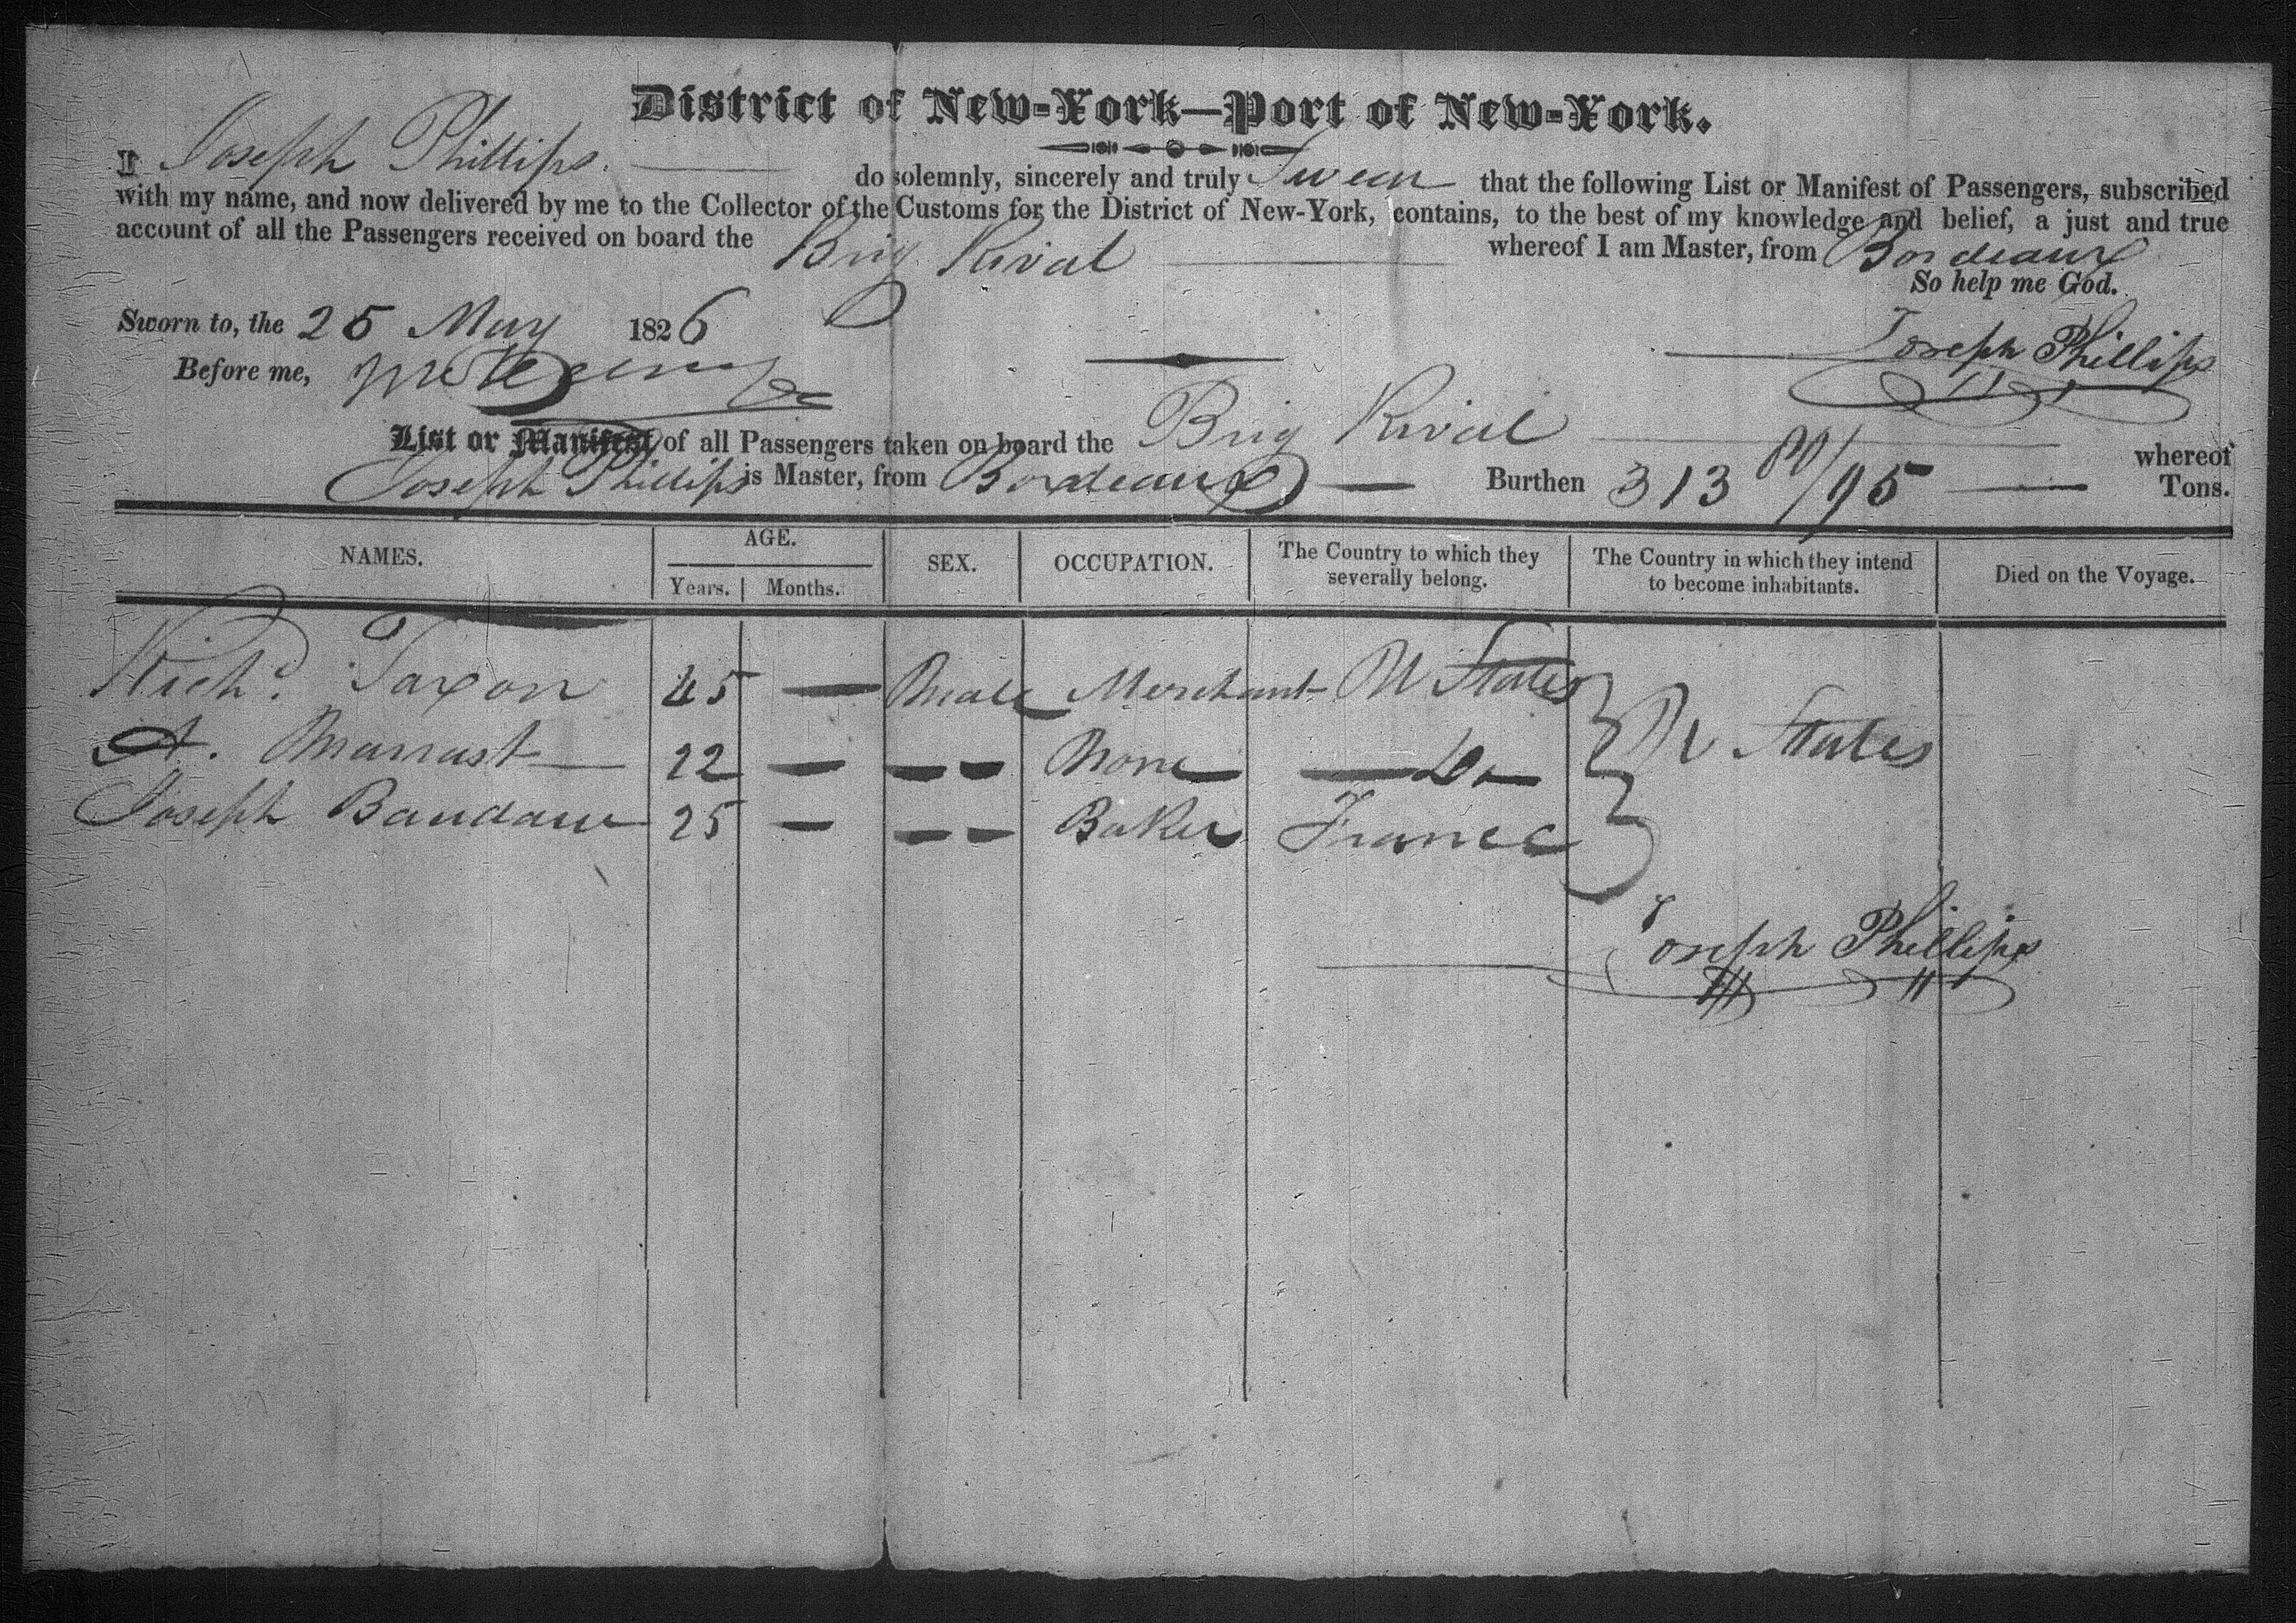 District of New-York—Port of New-York.
I Joseph Phillips. do solemnly, sincerely and truly Swear that the following List or Manifest of Passengers, subscribed
with my name, and now delivered by me to the Collector of the Customs for the District of New-York, contains, to the best of my knowledge and belief, a just and true
account of all the Passengers received on board the Brig Rival whereof I am Master, from Bordeaux
So help me God.
Sworn to, the 25 May 1826
Joseph Phillips
Before me,
List or Manifest of all Passengers taken on board the Brig Rival whereof
Joseph Phillips is Master, from Bordeaux Burthen 313 80/95 Tons.
NAMES. AGE. Years. Months. SEX. OCCUPATION. The Country to which they severally belong. The Country in which they intend to become inhabitants. Died on the Voyage.
Richd. Saxon 45 — Male Merchant U States
A. Marrast 22 — — — None — Do — U States
Joseph 25 — — — Baker France
Joseph Phillips